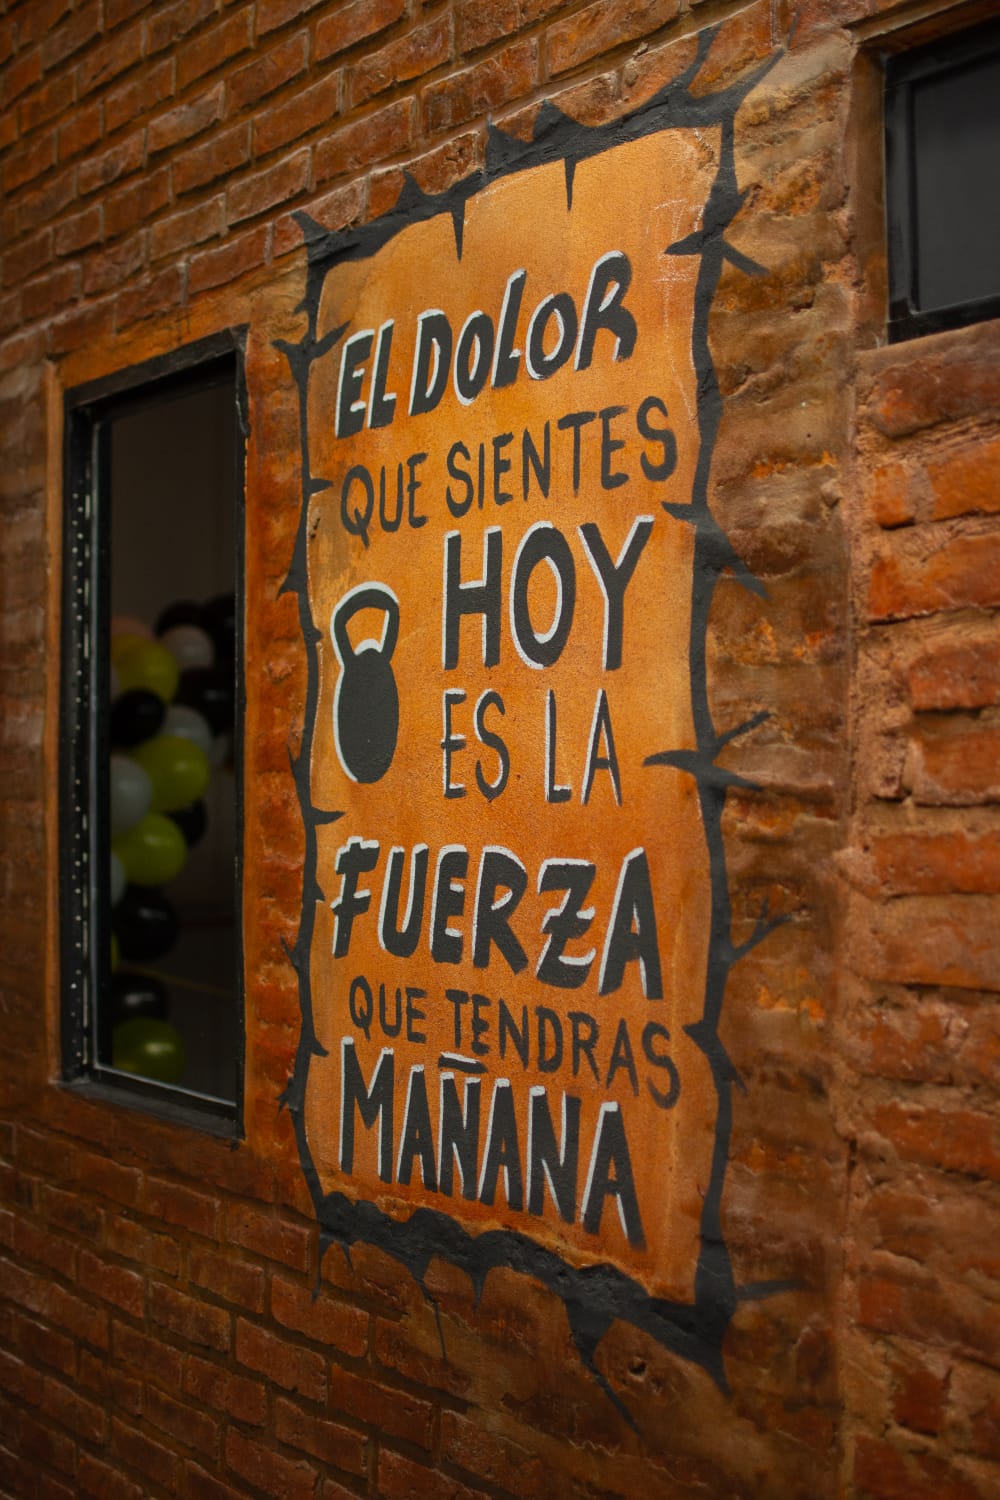 EL DOLOR
QUE SIENTES
HOY
ES LA
FUERZA
QUE TENDRAS
MAÑANA